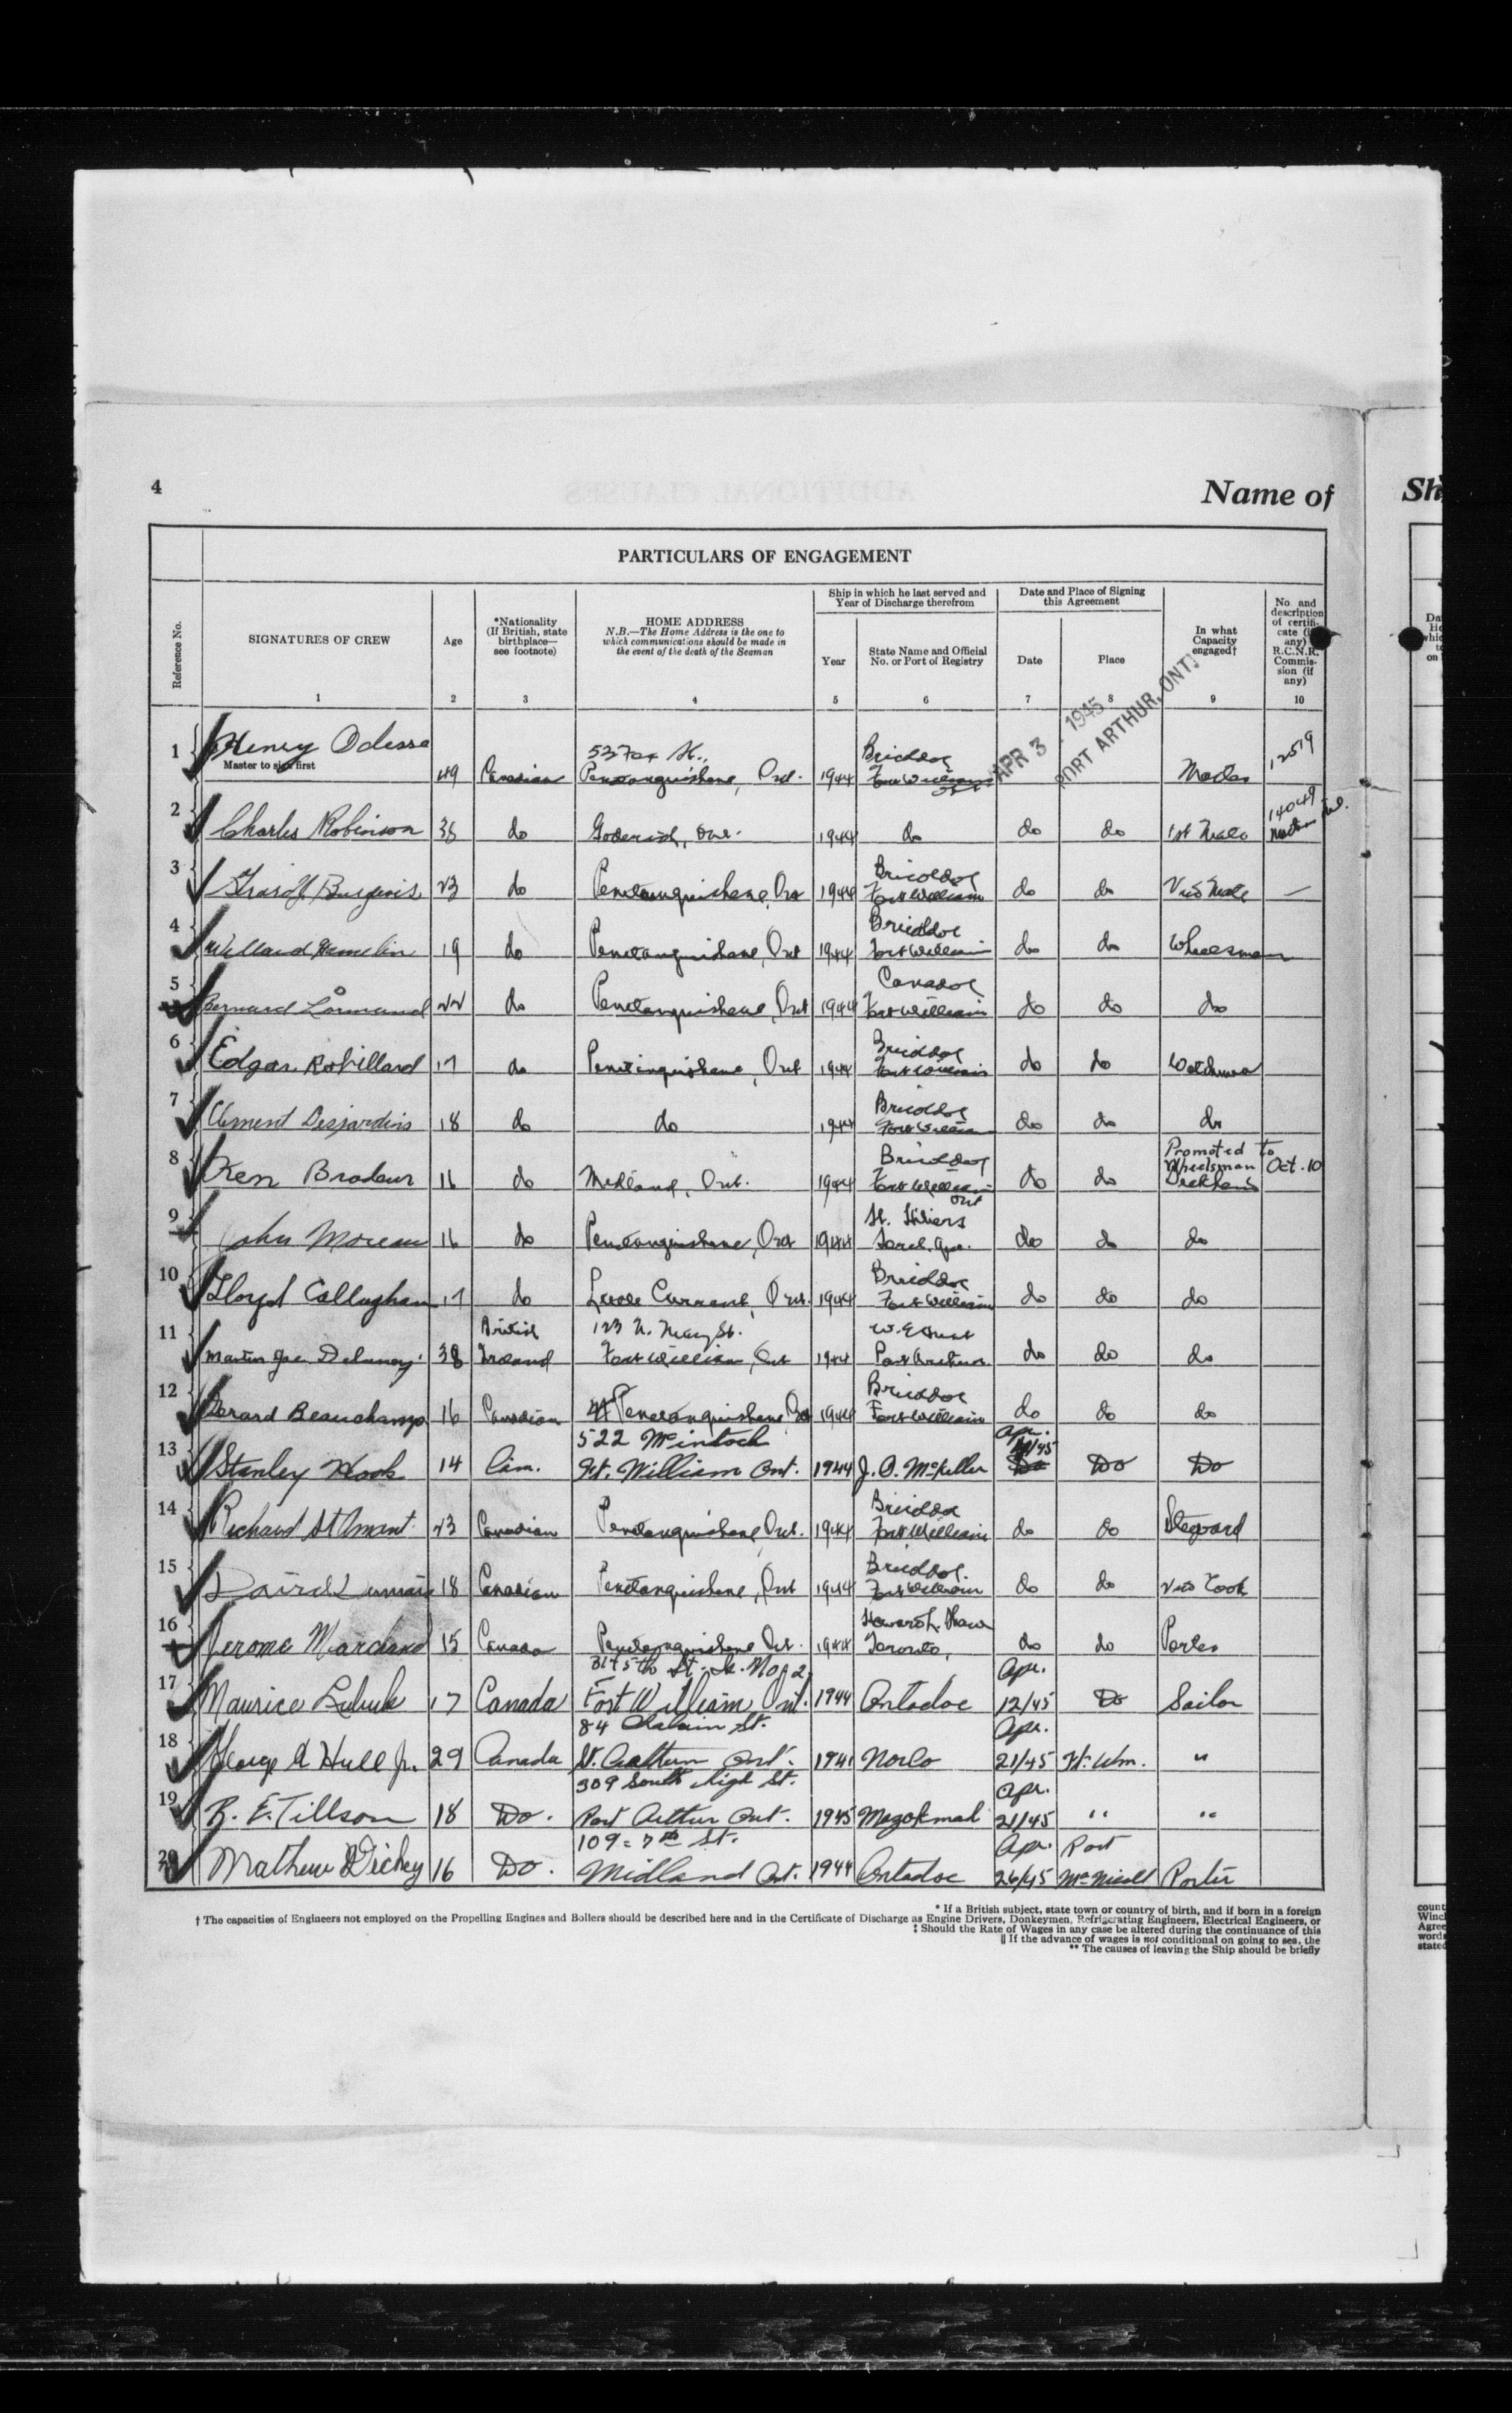 4
Name of
Sh
PARTICULARS OF ENGAGEMENT
Reference No.
SIGNATURES OF CREW
Age
*Nationality
(If British, state
birthplace—
see footnote)
HOME ADDRESS
N.B.—The Home Address is the one to
which communications should be made in
the event of the death of the Seaman
Ship in which he last served and
Year of Discharge therefrom
Year
State Name and Official
No. or Port of Registry
Date and Place of Signing
this Agreement
Date
Place
In what
Capacity
engaged†
No. and
description
of certifi-
cate (if
any)
R.C.N.R.
Commis-
sion (if
any)
1 2 3 4 5 6 7 8 9 10
APR 3 - 1945
PORT ARTHUR, ONT.
1 Henry Odesse
Master to sign first
49 Canadian Penetanguishene, Ont. 1944 Fort William Master 12519
2 Charles Robinson 38 do Goderich, Ont. 1944 do do do 1st Mate 14049
3 Burgeois 23 do Penetanguishene, Ont 1944 Fort William do do 2nd Mate —
4 Willard Hamelin 19 do Penetanguishene, Ont 1944 Fort William do do Wheelsman
5 Bernard Lormand 22 do Penetanguishene, Ont 1944 Canadoc Fort William do do do
6 Edgar Robillard 17 do Penetanguishene, Ont 1944 Fort William do do Watchman
7 Clement Desjardins 18 do do 1944 Fort William do do do
8 Ken Brodeur 16 do Midland, Ont. 1944 Fort William Ont do do
Promoted to
Wheelsman Oct. 10
Deckhand
9 John Moreau 16 do Penetanguishene, Ont 1944 Sorel, Que. do do do
10 Lloyd Callaghan 17 do Little Current, Ont. 1944 Fort William do do do
11 Martin Jas. Delaney 38 British Ireland 123 N. May St. Fort William, Ont 1944 Port Arthur do do do
12 Gerard Beauchamp 16 Canadian Penetanguishene, Ont 1944 Fort William do do do
13 Stanley Hook 14 Can. 522 McIntosh Ft. William Ont. 1944 J. O. McKellar Apr. Do Do
14 Richard St Amant 23 Canadian Penetanguishene, Ont. 1944 Fort William do do Steward
15 David 18 Canadian Penetanguishene, Ont 1944 Fort William do do 2nd Cook
16 Jerome Marchand 15 Canada Penetanguishene Ont. 1944 Howard L. Shaw Toronto, do do Porter
17 Maurice 17 Canada Fort William Ont. 1944 Ontadoc Apr. 12/45 Do Sailor
18 George A Hull Jr. 29 Canada Ont. 1941 Norco Apr. 21/45 Ft. Wm. "
19 R. E. Tillson 18 Do. 309 South High St. Port Arthur Ont. 1945 Magokmah Apr. 21/45 " "
20 Mathew Dickey 16 Do. 109 - 7th St. Midland Ont. 1944 Ontadoc Apr. 26/45 Port McNicoll Porter
* If a British subject, state town or country of birth, and if born in a foreign
† The capacities of Engineers not employed on the Propelling Engines and Boilers should be described here and in the Certificate of Discharge as Engine Drivers, Donkeymen, Refrigerating Engineers, Electrical Engineers, or
‡ Should the Rate of Wages in any case be altered during the continuance of this
|| If the advance of wages is not conditional on going to sea, the
** The causes of leaving the Ship should be briefly